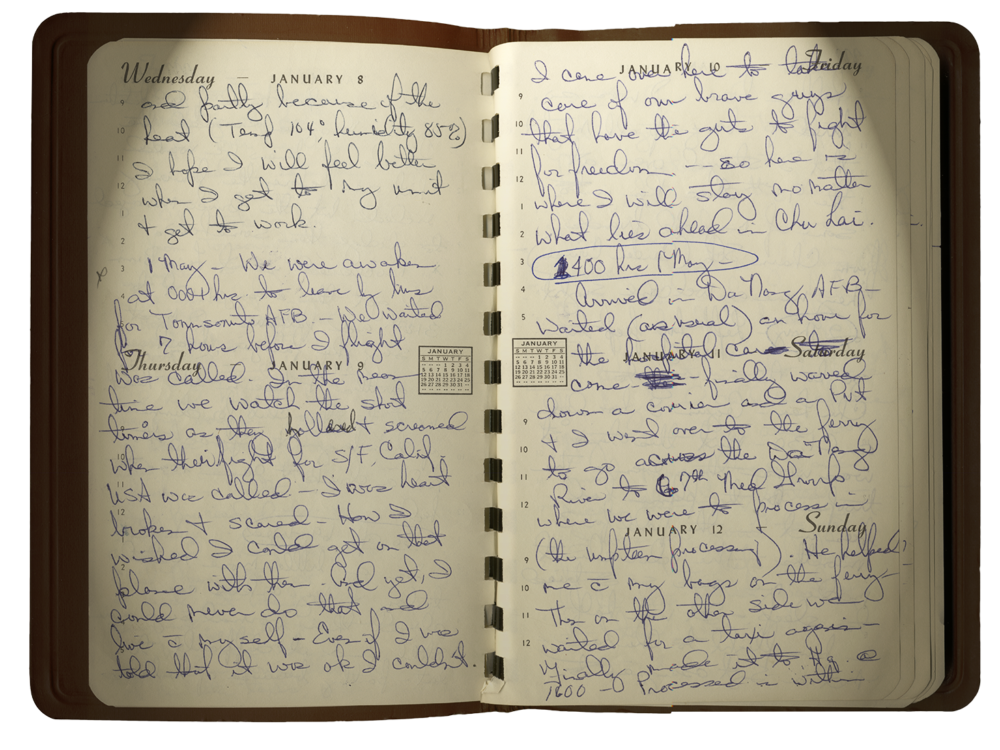 Wednesday — JANUARY 8
and partly because of the
heat (Temp 104° humidity 85%)
I hope I will feel better
when I get to my unit
+ get to work.
1 May - We were awaken
at 0001 hrs. to leave by bus
for Tonnsonute AFB - We waited
7 hours before I flight
Thursday JANUARY 9
was called. In the mean
time we watch the short
timers as they hollowed + screamed
when their flight for S/F, Calif.
USA was called - I was heart
broken + scared - How I
wished I could get on that
plane with them. And yet, I
could never do that and
live c̄ myself - Even if I was
told that it was ok I couldn't.
JANUARY
S M T W T F S
1 2 3 4
5 6 7 8 9 10 11
12 13 14 15 16 17 18
19 20 21 22 23 24 25
26 27 28 29 30 31
JANUARY 10 Friday
I came over here to take
care of our brave guys
that have the guts to fight
for freedom. -- So here is
where I will stay no matter
what lies ahead in Chu Lai.
1400 hrs 1 May -
Arrived in Da Nang AFB -
Waited (as usual) an hour for
JANUARY 11 Saturday
the hospital car to
come finally waved
down a courier and a Pvt
+ I went over to the ferry
to go across the Da Nang
River to 67th Med Group
where we were to process in
JANUARY 12 Sunday
(the umpteen processing). He helped
me c̄ my bags on the ferry -
Then on the other side we
waited for a taxi again -
Finally made it to Hq. @
1600 - Processed in within
JANUARY
S M T W T F S
1 2 3 4
5 6 7 8 9 10 11
12 13 14 15 16 17 18
19 20 21 22 23 24 25
26 27 28 29 30 31